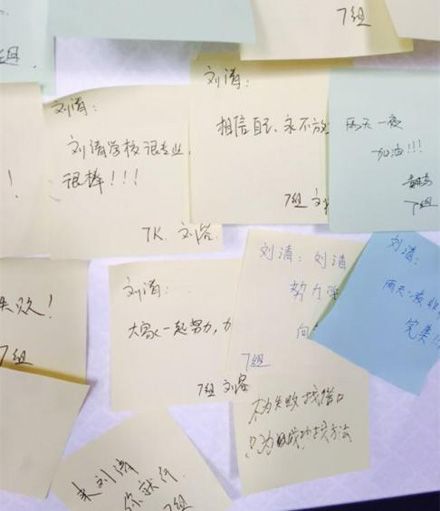 7组
组
刘涛:
刘涛学校很专业,
很棒!!!
7K. 刘容
刘涛:
相信自己、永不放
7组
两天一夜
加油!!!
7组
!
失败!
7组
刘涛:
大家一起努力,力
7组 刘容
刘涛: 刘涛
努力
向
7组
刘涛:
两天一夜
完美
不为失败找借口
只为成功找方法
来刘涛
你就行
7组